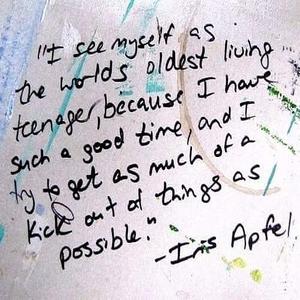 "I see myself as
the worlds oldest living
teenager, because I have
such a good time, and I
try to get as much of a
kick out of things as
possible."
-Iris Apfel.